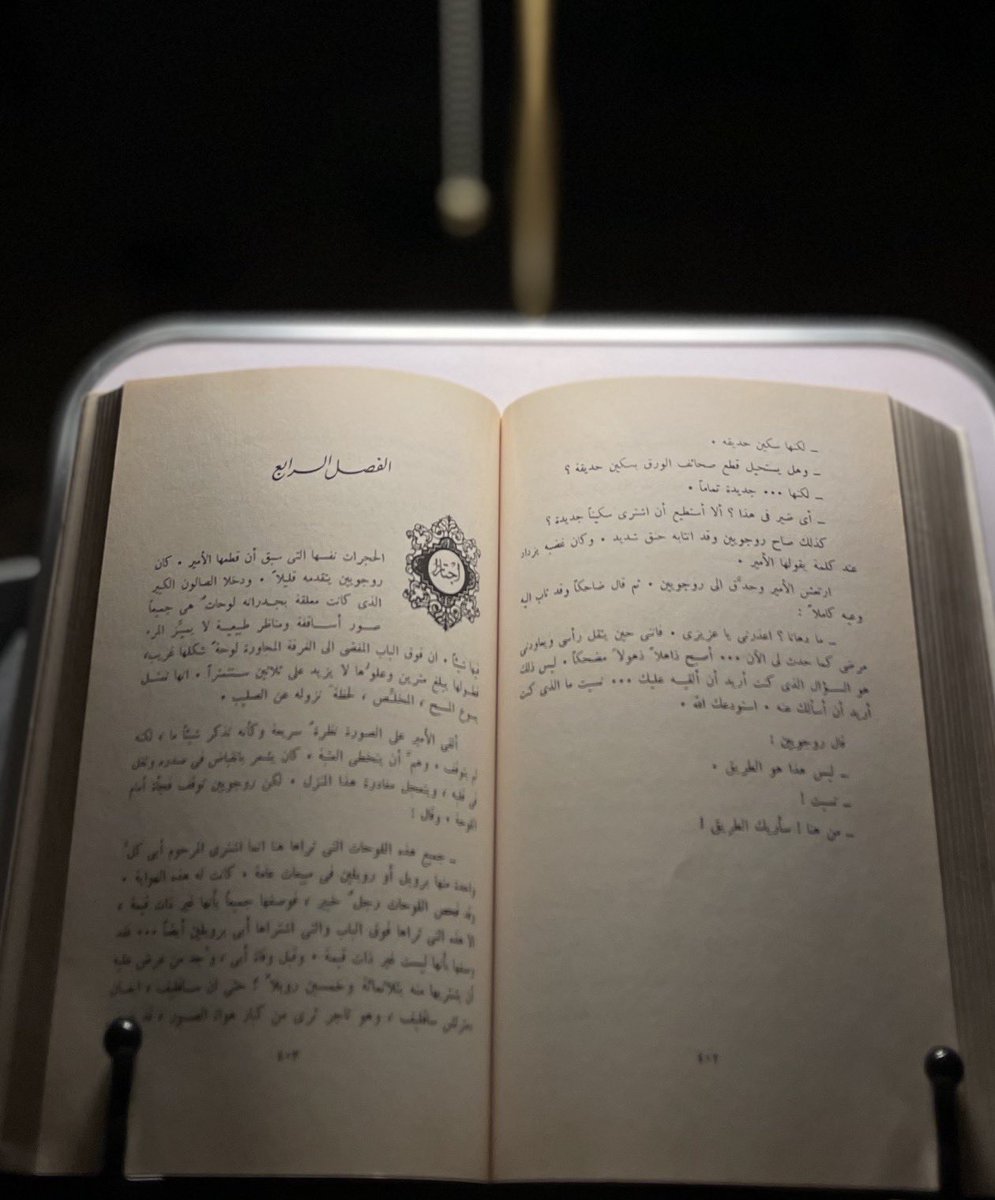 ـ لكنها سكين حديقة .
ـ وهل يستحيل قطع صحائف الورق بسكين حديقة ؟
ـ لكنها ... جديدة تماماً .
ـ أى ضير فى هذا ؟ ألا أستطيع أن اشترى سكيناً جديدة ؟
كذلك صاح روجويين وقد انتابه حنق شديد . وكان غضبه يزداد
عند كلمة يقولها الأمير .
ارتعش الأمير وحدَّق الى روجويين . ثم قال ضاحكاً وقد ثاب اليه
وعيه كاملاً :
ـ ما دهانا ؟ اعذرنى يا عزيزى . فاننى حين يثقل رأسى ويعاودنى
مرضى كما حدث لى الآن ... أصبح ذاهلاً ذهولاً مضحكاً . ليس ذلك
هو السؤال الذى كنت أريد أن ألقيه عليك ... نسيت ما الذى كنت
أريد أن أسألك عنه . استودعك الله .
قال روجويين :
ـ ليس هذا هو الطريق .
ـ نسيت !
ـ من هنا ! سأريك الطريق !
٤٠٢
الفصل الرابع
اجتازا
الحجرات نفسها التى سبق أن قطعها الأمير . كان
روجويين يتقدمه قليلاً . ودخلا الصالون الكبير
الذى كانت معلقة بجدرانه لوحات هى جميعاً
صور أساقفة ومناظر طبيعية لا يميِّز المرء
فيها شيئاً . ان فوق الباب المفضى الى الغرفة المجاورة لوحة شكلها غريب،
فطولها يبلغ مترين وعلوها لا يزيد على ثلاثين سنتمتراً . انها تمثل
يسوع المسيح ، المخلِّص ، لحظة نزوله عن الصليب .
ألقى الأمير على الصورة نظرة سريعة وكأنه تذكر شيئاً ما ، لكنه
لم يتوقف . وهمَّ أن يتخطى العتبة . كان يشعر بانقباض فى صدره وثقل
فى قلبه ، ويتعجل مغادرة هذا المنزل . لكن روجويين توقف فجأة أمام
اللوحة . وقال :
ـ جميع هذه اللوحات التى تراها هنا انما اشترى المرحوم أبى كلَّ
واحدة منها بروبل أو روبلين فى مبيعات عامة . كانت له هذه الهواية .
وقد فحص اللوحات رجل خبير ، فوصفها جميعاً بأنها غير ذات قيمة ،
الا هذه التى تراها فوق الباب والتى اشتراها أبى بروبلين أيضاً ... فقد
وصفها بأنها ليست غير ذات قيمة . وقبل وفاة أبى ، وُجد من عرض عليه
أن يشتريها منه بثلاثمائة وخمسين روبلاً ؛ حتى ان سافليف ، ايفان
سافليف ، وهو تاجر ثرى من كبار هواة الصور ، قد
٤٠٣